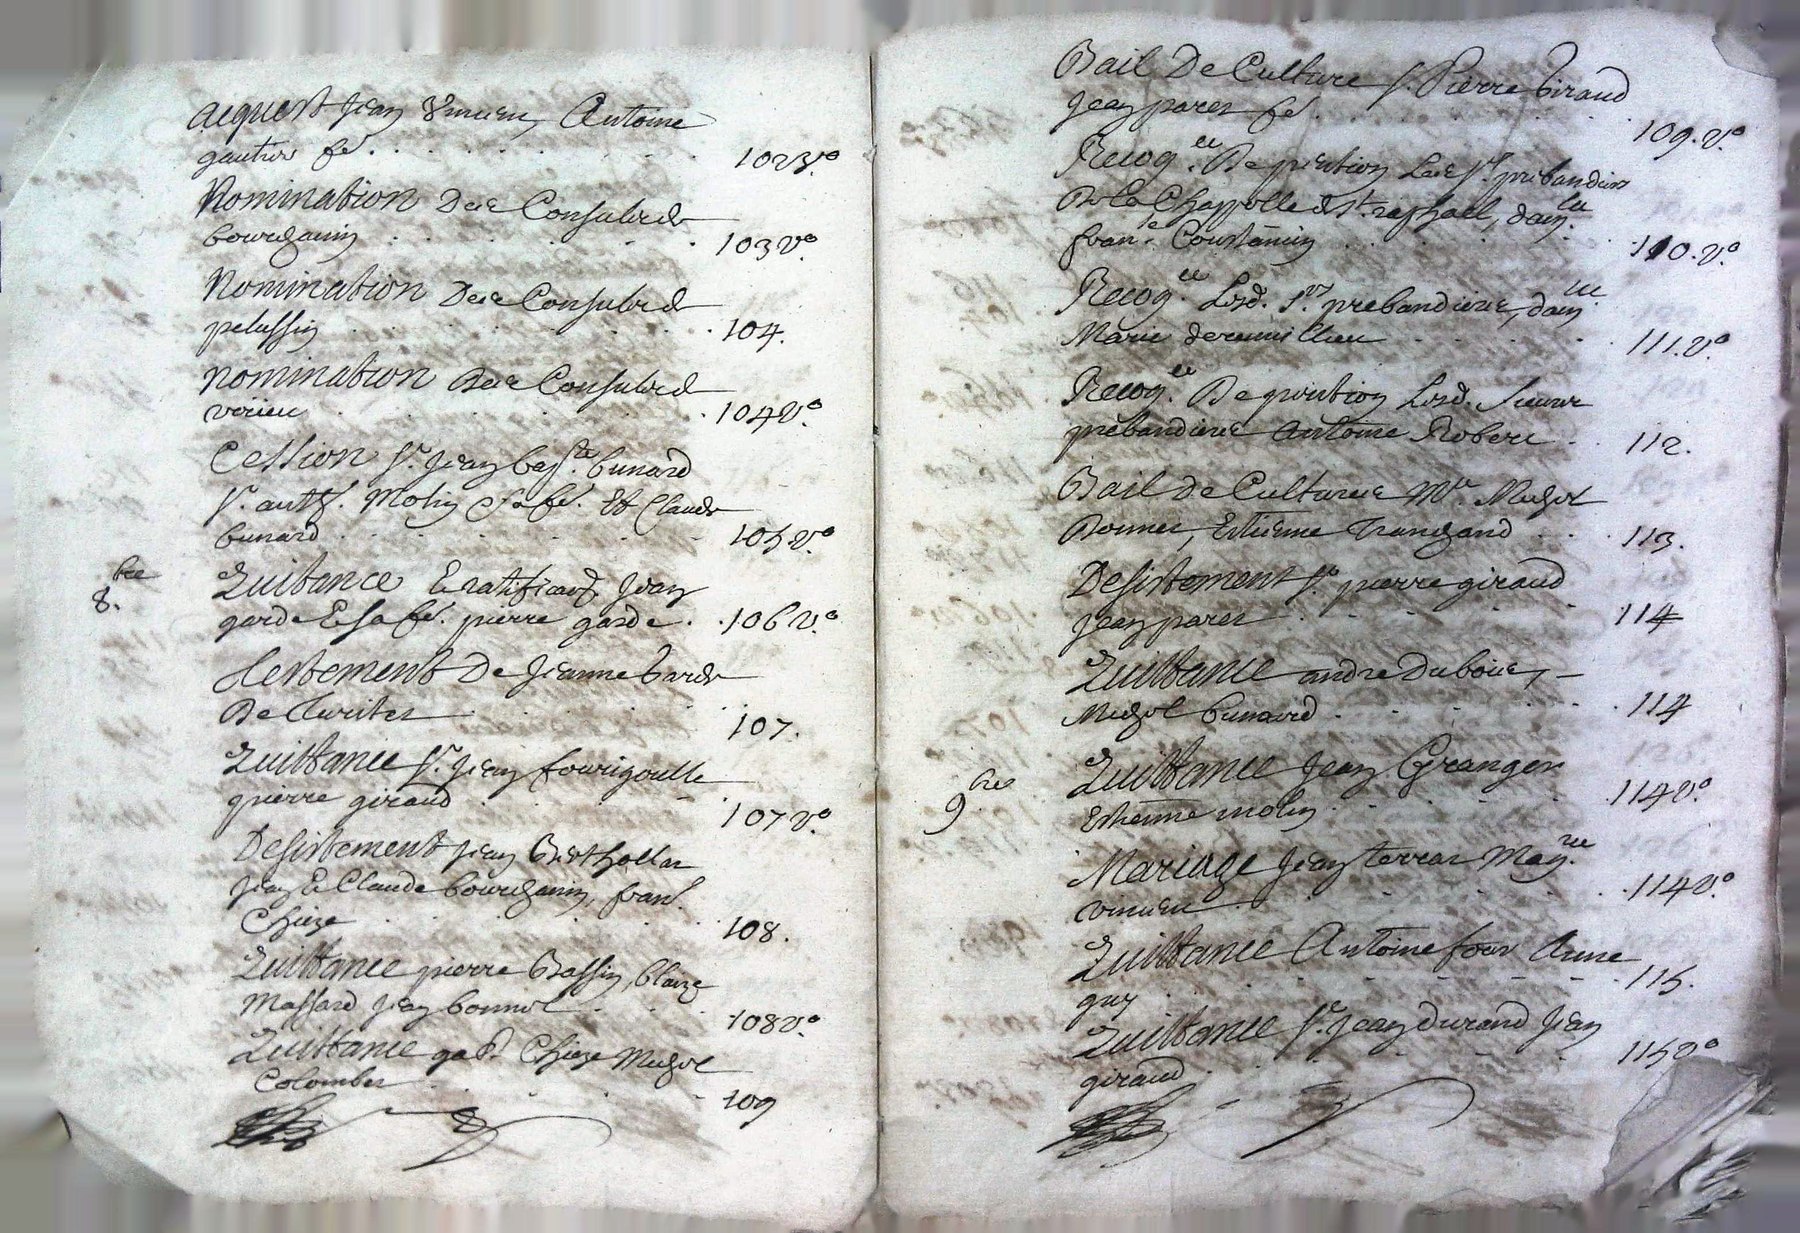 acquest Jean Vincen, Antoine
gautier fé. 102 v.º
Nomination Des Consuls de
bourdamin 103 v.º
Nomination Des Consuls de
pelussin 104.
Nomination Des Consuls de
virieu 104 v.º
Cession s.r Jean bap.te bunard
s.r anth. Molin Et sa fé. Et Claude
bunard 105 v.º
8.bre
Quittance Jean
garde Et sa fé. pierre garde 106 v.º
Testement De Jeanne
107.
Quittance s.r Jean fourigoulle
pierre giraud 107 v.º
Desistement Jean Berthollar
Jean Et Claude bourdamin, fran.s
Chieze 108.
Quittance pierre Bassin, blaize
Massard Jean bonnot 108 v.º
Quittance gasp. Chieze Michel
Colombet 109
Bail De Culture s.r Pierre Giraud
Jean paret fé. 109. v.º
Recog.ce De pention Les s.rs prebandiers
De la Chappelle de st. raphael, dam.lle
fran.se Constancin 110. v.º
Recog.ce Lesd. s.rs prebandiers, dam.lle
Marie 111. v.º
Recog.ce De pention Lesd. sieurs
prebandiers Antoine Robert 112.
Bail De Cultures M.re Michel
Bonnet, Estienne Trangand 113.
Desistement s.r pierre giraud
Jean paret 114
Quittance andre Duboue,
Michel bunard 114
9.bre
Quittance Jean Granger
Estienne molin 114 v.º
Mariage Jean terrat Mag.ne
vincen 114 v.º
Quittance Antoine four Anne
guy 115.
Quittance s.r Jean durand Jean
giraud 115 v.º